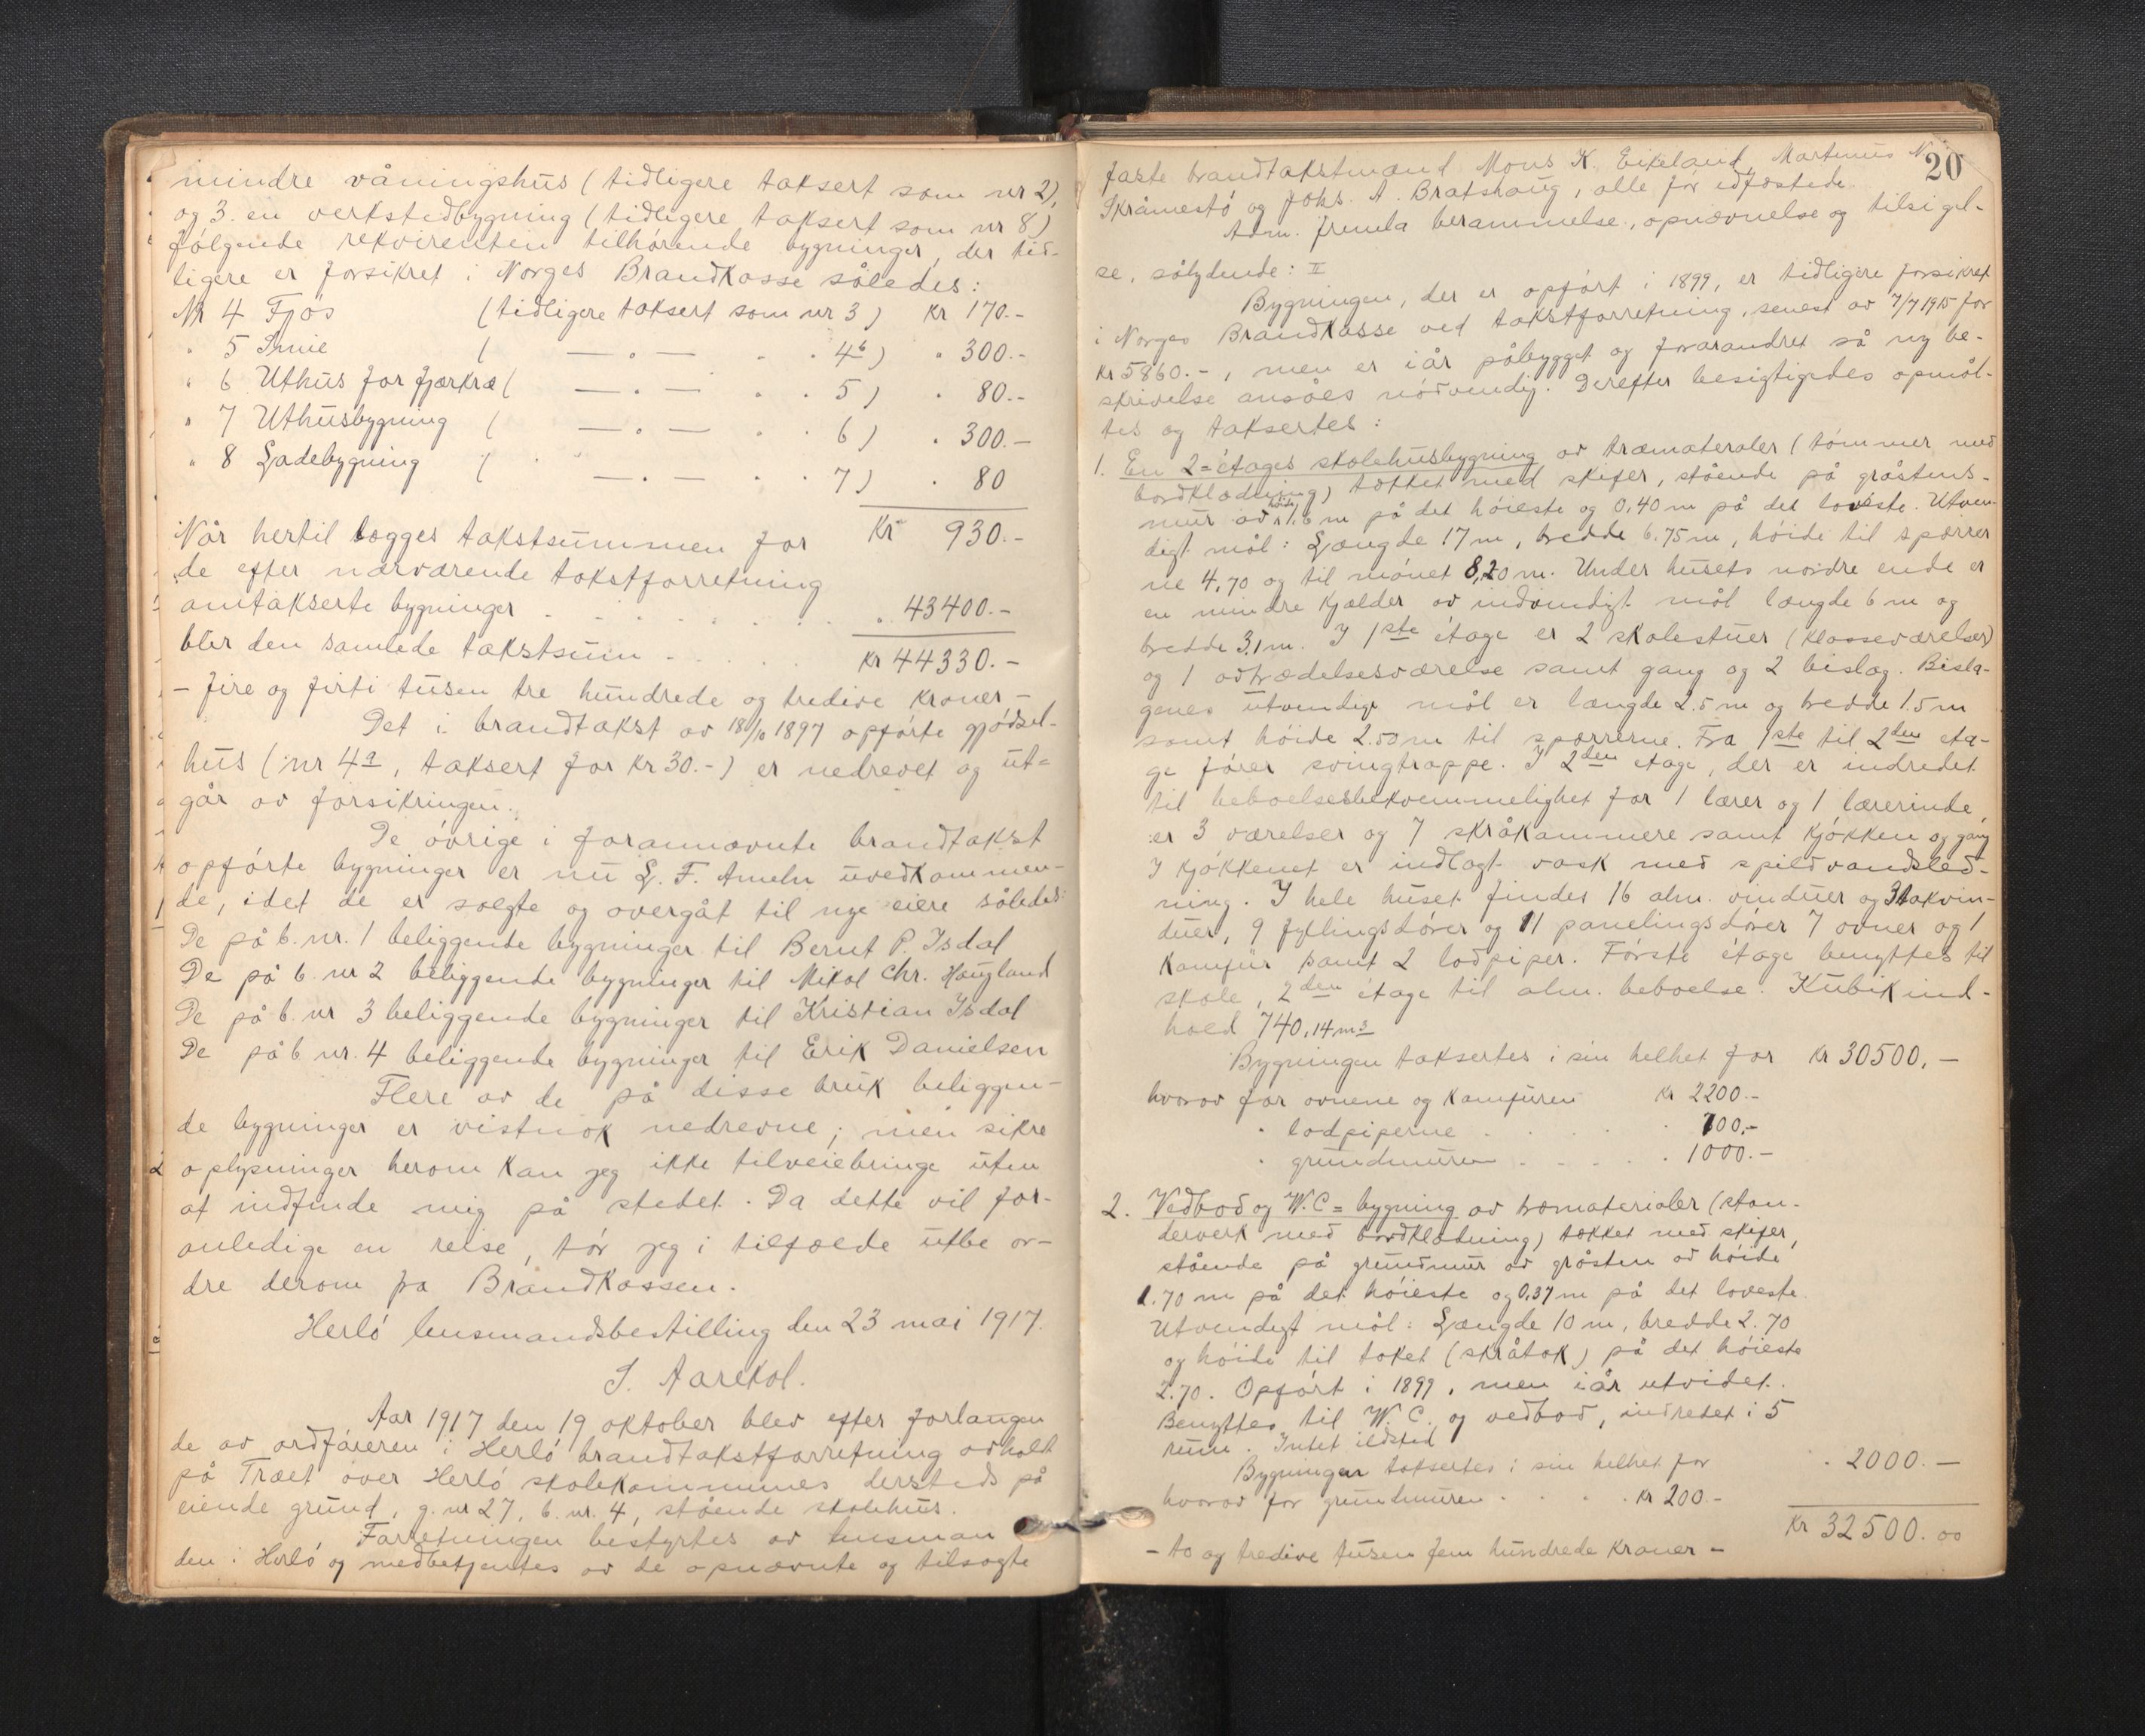 mindre våningshus (tidligere taksert som nr 2),
og 3. en verkstedbygning (tidligere taksert som nr 8)
følgende rekvirenten tilhørende bygninger, der tid-
ligere er forsikret i Norges Brandkasse således:
Nr 4 Fjøs (tidligere taksert som nr 3) Kr 170.-
" 5 Smie ( — . — . . 4b) . 300.-
" 6 Uthus for fjærkræ ( — . — . . 5) . 80.-
" 7 Uthusbygning ( — . — . . 6) . 300.-
" 8 Ladebygning ( — . — . . 7) . 80
Kr 930.-
Når hertil lægges takstsummen for
de efter nærværende takstforretning
omtakserte bygninger . . . . . . . 43400.-
blir den samlede takstsum . . . . Kr 44330.-
- fire og firti tusen tre hundrede og tredive kroner -
Det i brandtakst av 18/10 1897 opførte gjødsel-
hus (nr 4a, taksert for Kr 30.-) er nedrevet og ut-
går av forsikringen.
De øvrige i forannævnte brandtakst
opførte bygninger er nu L. F. Ameln uvedkommen-
de, idet de er solgte og overgåt til nye eiere således:
De på b. nr. 1 beliggende bygninger til Bernt P. Isdal
De på b. nr 2 beliggende bygninger til Mikal Chr. Haugland
De på b. nr 3 beliggende bygninger til Kristian Isdal
De på b nr. 4 beliggende bygninger til Erik Danielsen
Flere av de på disse bruk beliggen-
de bygninger er vistnok nedrevne; men sikre
oplysninger herom kan jeg ikke tilveiebringe uten
at indfinde mig på stedet. Da dette vil for-
anledige en reise, tør jeg i tilfælde utbe or-
dre derom fra Brandkassen.
Herlø lensmandsbestilling den 23 mai 1917.
Aar 1917 den 19 oktober blev efter forlangen
de av ordføreren i Herlø brandtakstforretning avholdt
på Træet over Herlø skolekommunes dersteds på
eiende grund, g. nr 27, b. nr. 4, stående skolehus.
Forretningen bestyrtes av lensman
den i Herlø og medbetjentes av de opnævnte og tilsagte
20
faste brandtakstmænd Mons K. Eikeland, Martinus N.
Skråmestø og Johs. A. Bratshaug, alle før edfæstede.
Adm. fremla berammelse, opnævnelse og tilsigel-
se, sålydende: II
Bygningen, der er opført i 1899, er tidligere forsikret
i Norges Brandkasse ved takstforretning, senest av 7/7 1915 for
Kr 5860.-, men er iår påbygget og forandret så ny be-
skrivelse ansåes nødvendig. Derefter besigtigedes opmål-
tes og taksertes:
1. En 2=étages skolehusbygning av træmaterialer (tømmer med
bordklædning) tækket med skifer, stående på gråstens-
mur av høide 1,6 m på det høieste og 0,40 m på det laveste. Utven-
digt mål: Længde 17 m, bredde 6.75 m, høide til sparrer
ne 4,70 og til mønet 8,20 m. Under husets nordre ende er
en mindre kjælder av indvendigt mål længde 6 m og
bredde 3,1 m. I 1ste étage er 2 skolestuer (klasseværelser)
og 1 avtrædelsesværelse samt gang og 2 bislag. Bisla-
genes utvendige mål er længde 2.5 m og bredde 1.5 m
samt høide 2.50 m til sparrerne. Fra 1ste til 2den eta-
ge fører svingtrappe. I 2den etage, der er indredet
til beboelsesbekvemmelighet for 1 lærer og 1 lærerinde,
er 3 værelser og 7 skråkammere samt kjøkken og gang
I kjøkkenet er indlagt vask med spildvandsled-
ning. I hele huset findes 16 alm. vinduer og 3 takvin-
duer, 9 fyllingsdører og 11 panelingsdører 7 ovner og 1
komfur samt 2 lodpiper. Første étage benyttes til
skole, 2den étage til alm. beboelse. Kubikind-
hold 740,14 m3
Bygningen taksertes i sin helhet for Kr 30500,-
hvorav for ovnene og komfuren Kr 2200.-
" lodpiperne . . . . 700.-
" grundmuren . . . . 1000.-
2. Vedbod og W.C=bygning av træmaterialer (stan-
derverk med bordklædning) tækket med skifer,
stående på grundmur av gråsten av høide
1.70 m på det høieste og 0,37 m på det laveste.
Utvendigt mål: Længde 10 m, bredde 2.70
og høide til taket (skråtak) på det høieste
2.70. Opført i 1899, men iår utvidet.
Benyttes til W.C. og vedbod, indredet i 5
rum. Intet ildsted
Bygningen taksertes i sin helhet for . 2000.-
hvorav for grundmuren . . . . Kr 200.-
Kr 32500.00
- to og tredive tusen fem hundrede kroner -